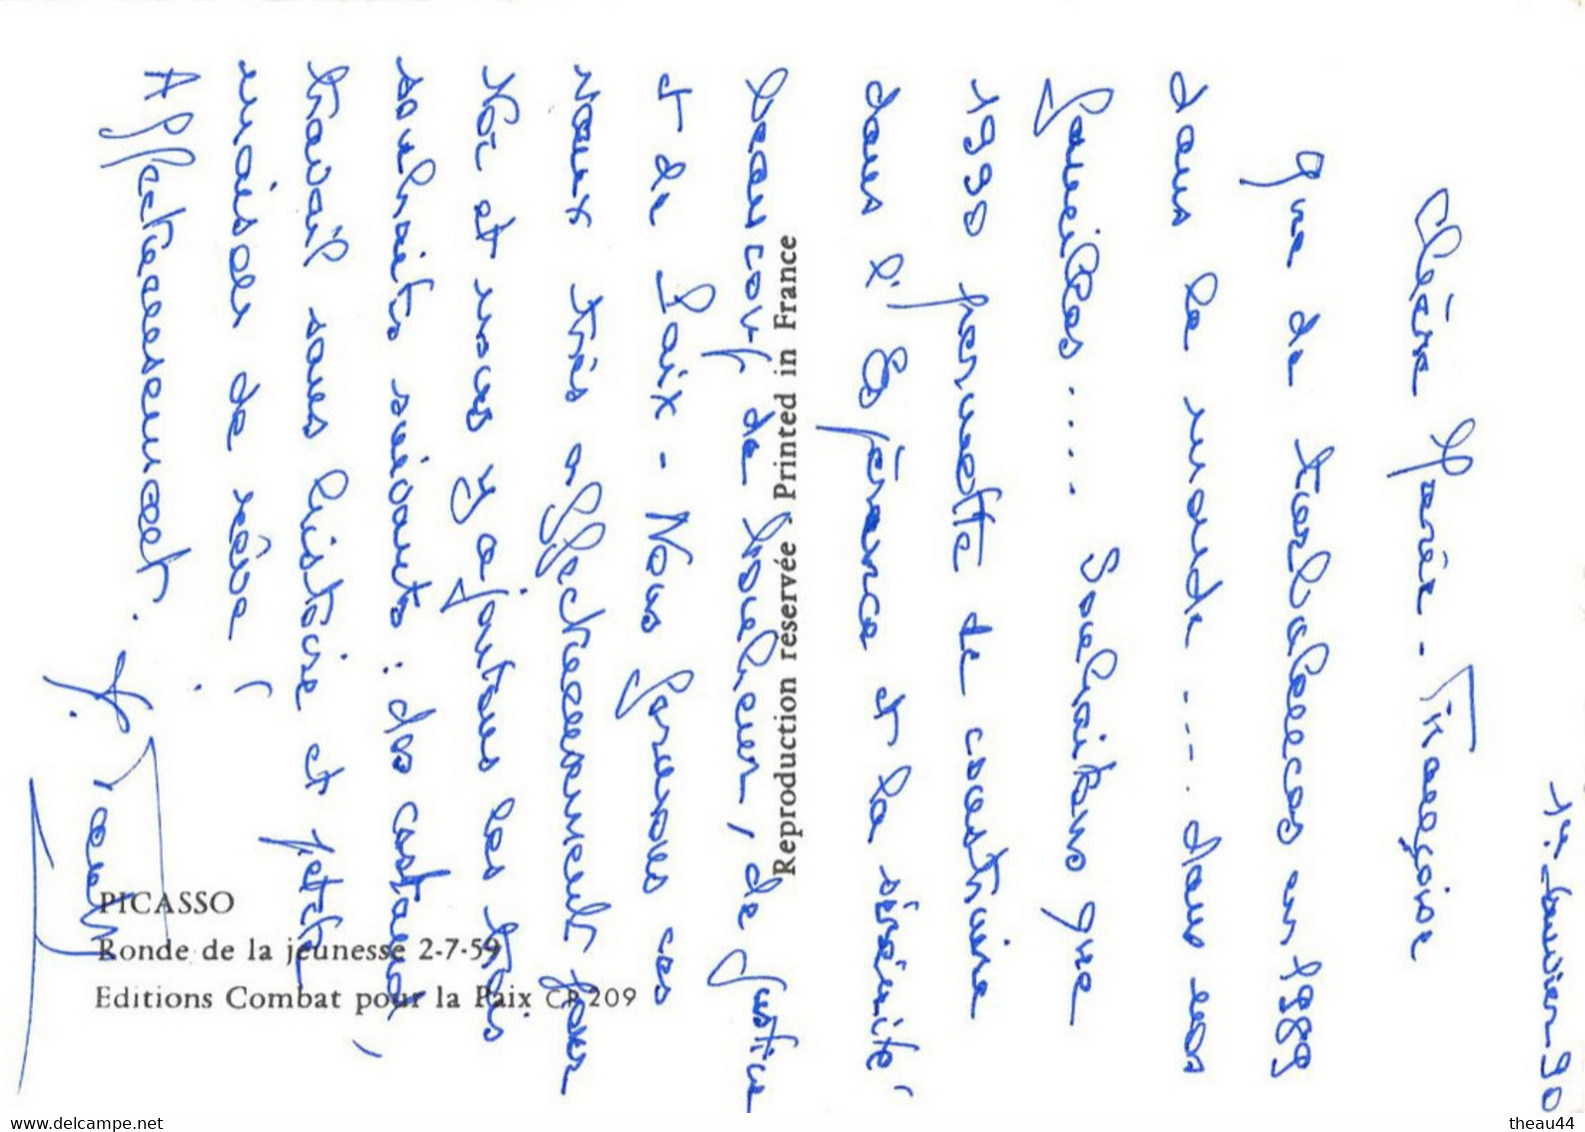 1er Janvier 90
Chère Marie-Françoise
Que de turbulences en 1989
dans le monde ... dans nos
familles .... Souhaitons que
1990 permette de construire
dans l'Espérance et la sérénité
beaucoup de bonheur, de justice
et de Paix - Nous formons ces
vœux très affectueusement pour
toi et nous y ajoutons les trois
souhaits suivants : des costauds,
travail sans histoire et petite
maison de rêve !
Affectueusement.
PICASSO
Ronde de la jeunesse 2-7-59
Editions Combat pour la Paix CP 209
Reproduction reservée - Printed in France
www.delcampe.net
theau44